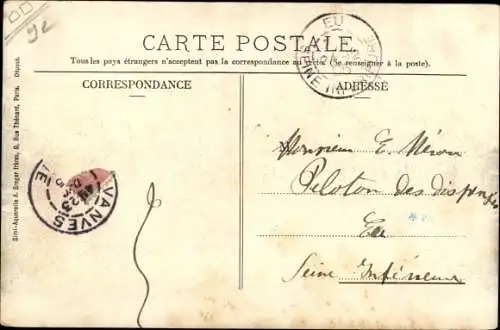 9e
CARTE POSTALE.
Tous les pays étrangers n'acceptent pas la correspondance au recto. (Se renseigner à la poste).
CORRESPONDANCE
ADRESSE
EU
SEINE INF
VANVES
23
Simi-Aquarelle A. Breger frères, 9, Rue Thénard, Paris. Déposé.
Monsieur E. Méron
Peloton des dispensés
Eu
Seine Inférieure